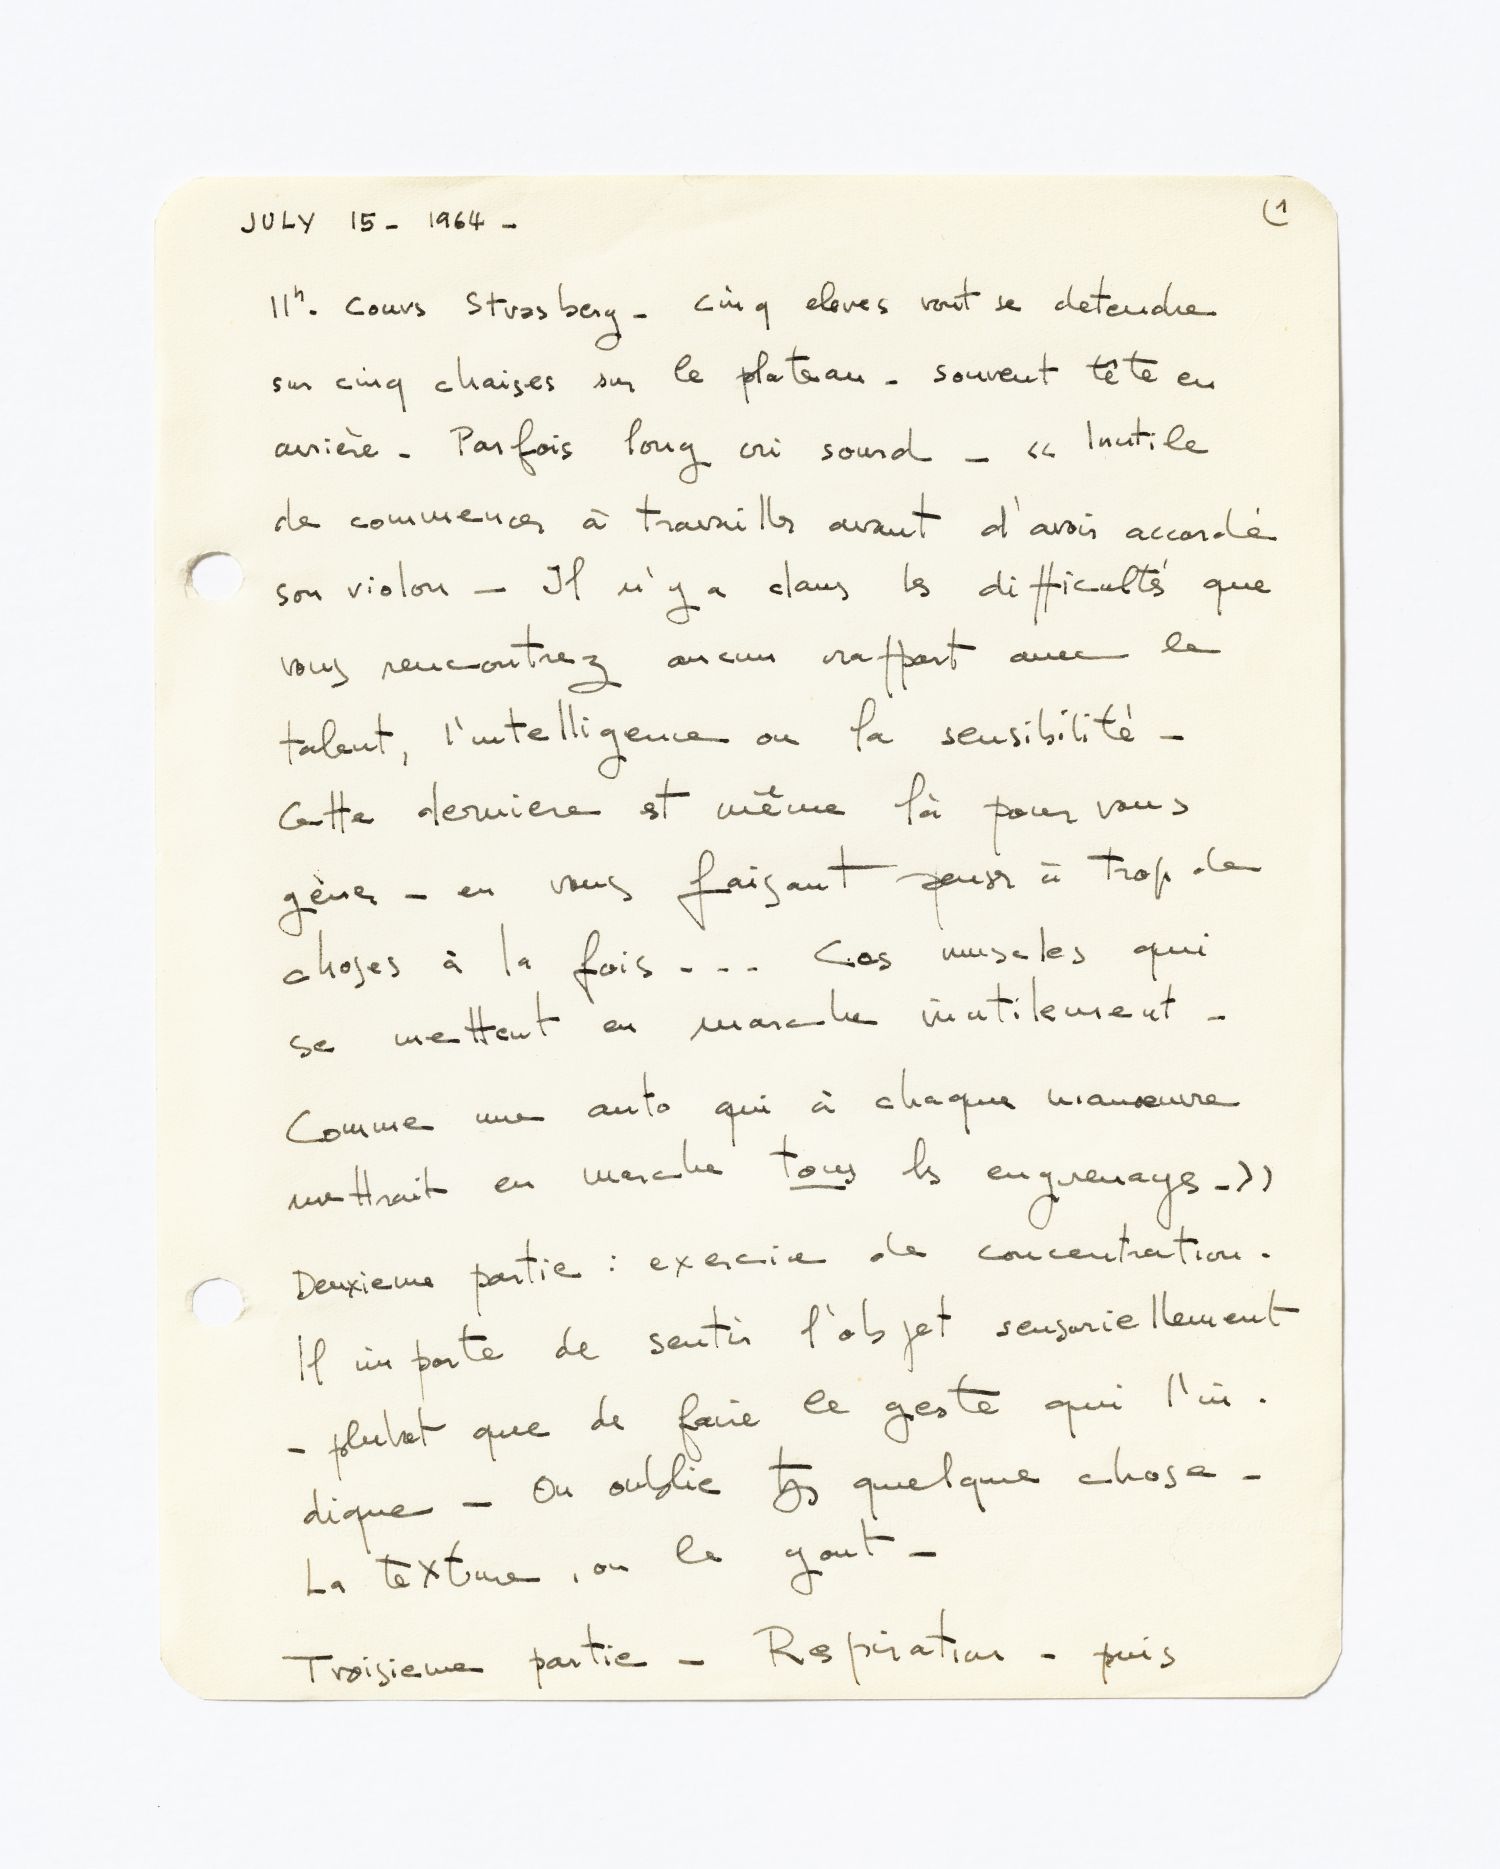 JULY 15 - 1964 -
(1
11h. Cours Strasberg - cinq eleves vont se detendre
sur cinq chaises sur le plateau - souvent tête en
arrière - Parfois long cri sourd - « Inutile
de commencer à travailler avant d'avoir accordé
son violon - Il n'y a dans les difficultés que
vous rencontrez aucun rapport avec le
talent, l'intelligence ou la sensibilité -
Cette derniere est même là pour vous
gèner - en vous faisant penser à trop de
choses à la fois - - - Ces muscles qui
se mettent en marche inutilement -
Comme une auto qui à chaque manoeuvre
mettrait en marche tous les engrenages - »
Deuxieme partie : exercice de concentration.
Il importe de sentir l'objet sensoriellement
- plutot que de faire le geste qui l'in.
dique - On oublie tjs quelque chose -
La texture, ou le gout -
Troisieme partie - Respiration - puis